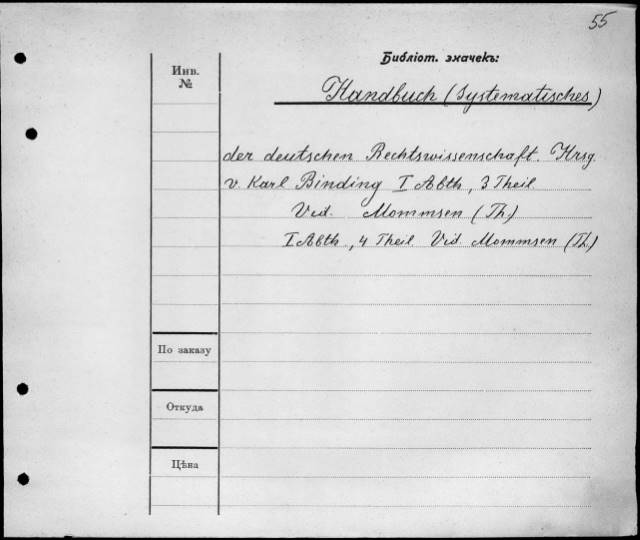 55
Библіот. значекъ:
Инв.
№
Handbuch (Systematisches)
der deutschen Rechtswissenschaft. Hrsg.
v. Karl Binding I Abth, 3 Theil
Vid. Mommsen (Th.)
I Abth., 4 Theil Vid. Mommsen (Th.)
По заказу
Откуда
Цѣна